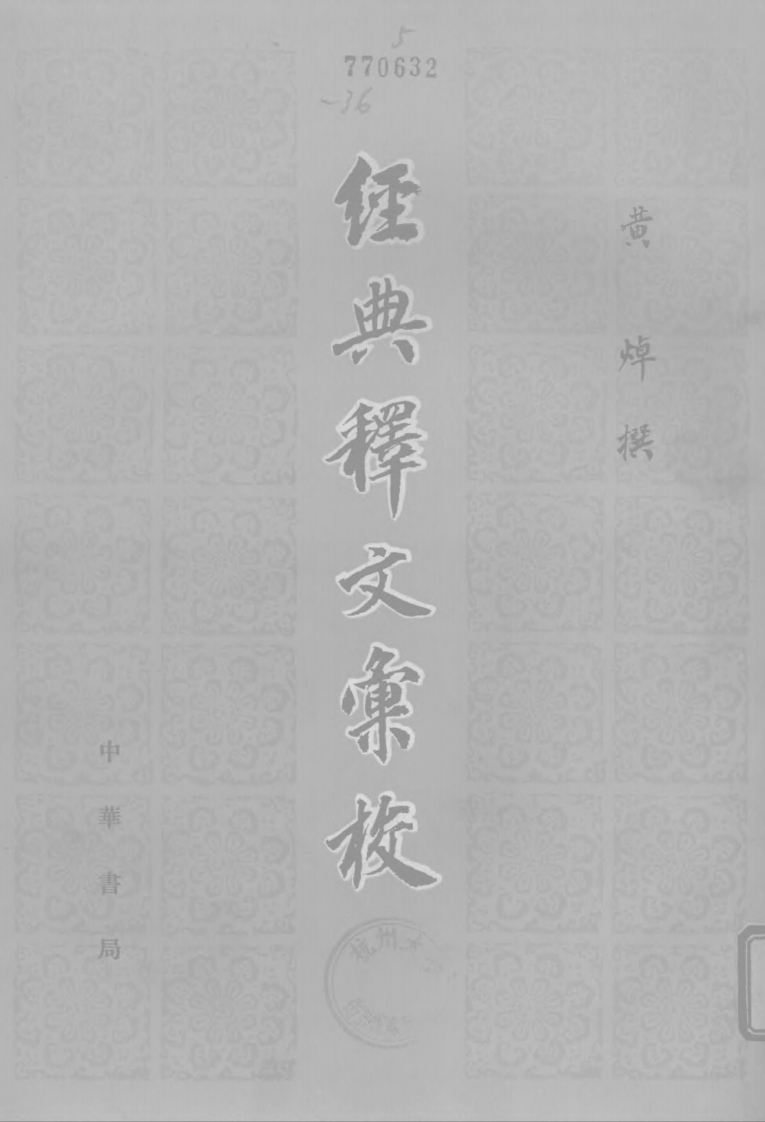 5
770632
-36
黄焯撰
經典釋文彙校
中華書局
杭州大